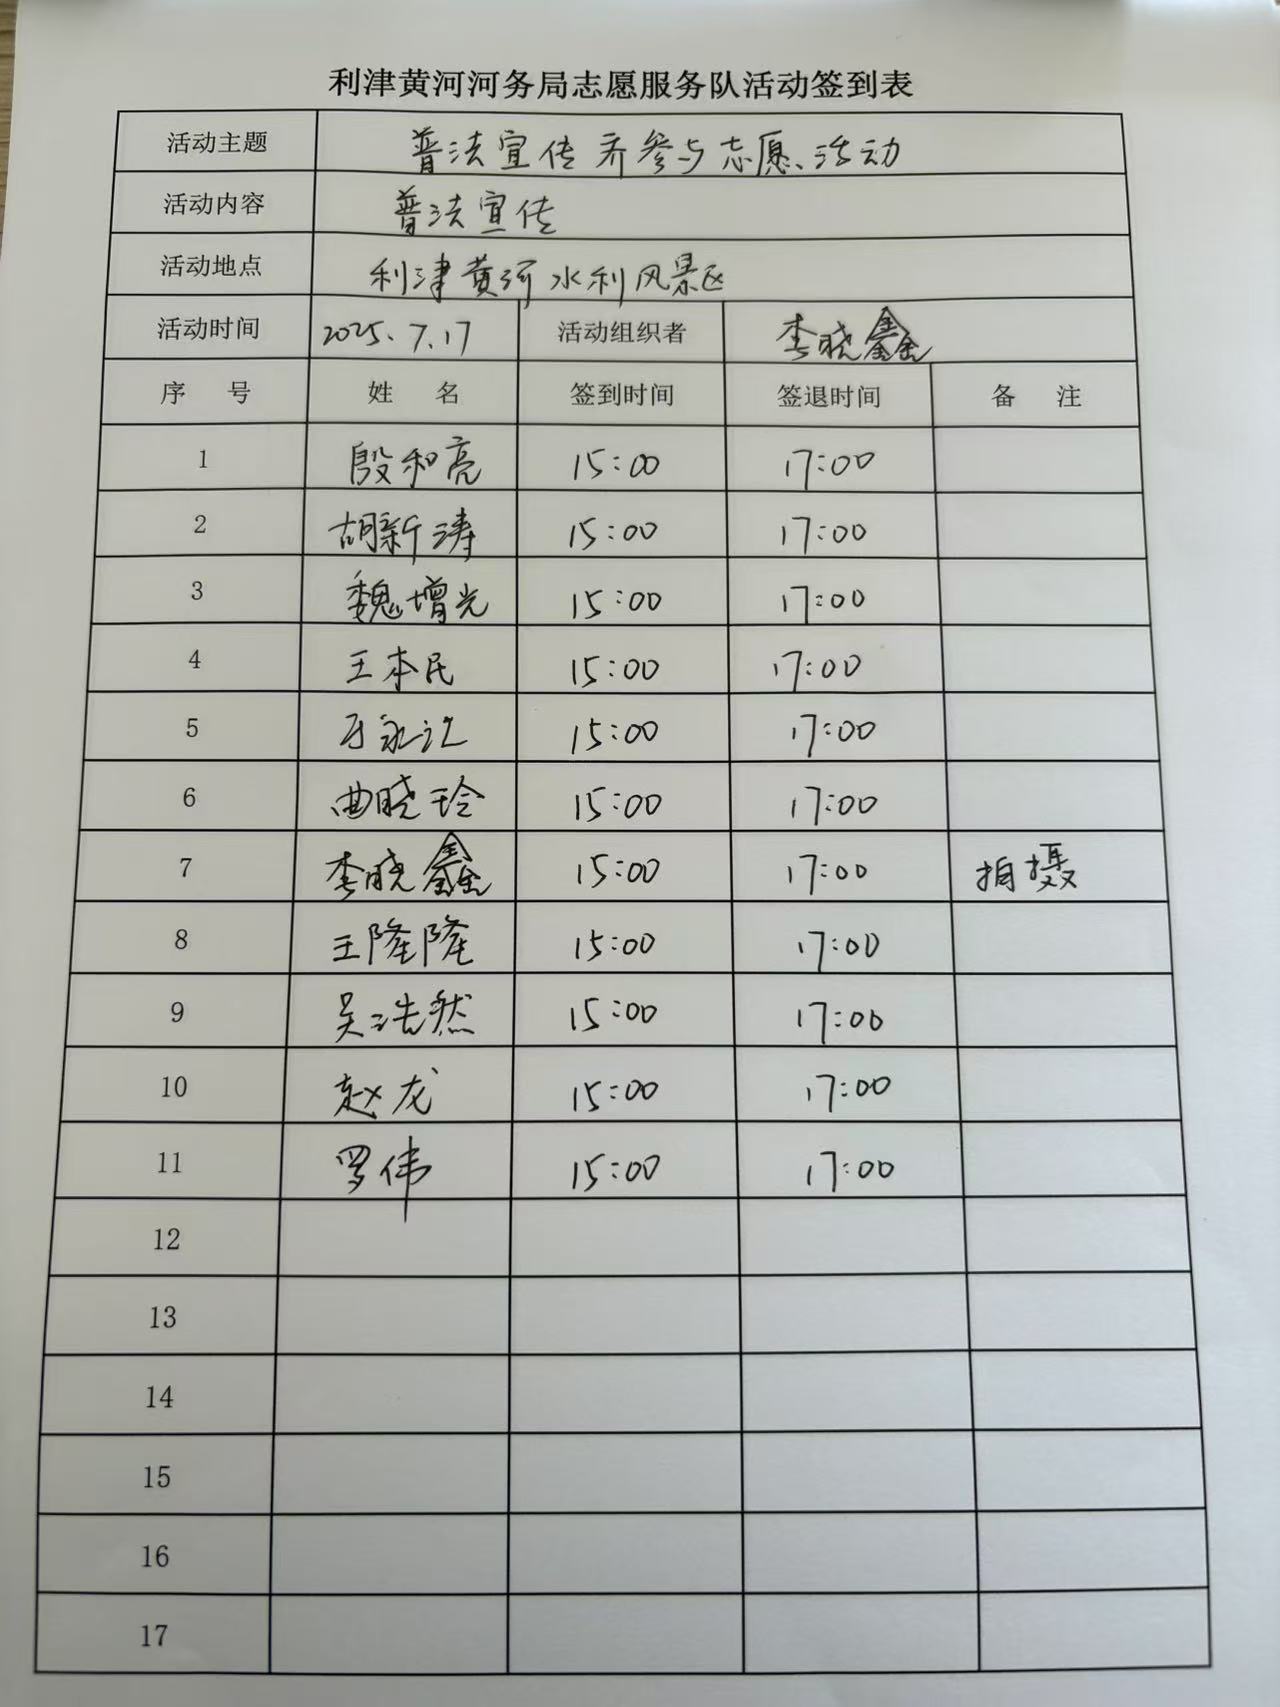 利津黄河河务局志愿服务队活动签到表
活动主题 普法宣传 齐参与志愿活动
活动内容 普法宣传
活动地点 利津黄河水利风景区
活动时间 2025.7.17 活动组织者 李晓鑫
序 号 姓 名 签到时间 签退时间 备 注
1 殷和亮 15:00 17:00
2 胡新涛 15:00 17:00
3 魏增光 15:00 17:00
4 王本民 15:00 17:00
5 15:00 17:00
6 曲晓玲 15:00 17:00
7 李晓鑫 15:00 17:00 拍摄
8 王隆隆 15:00 17:00
9 吴浩然 15:00 17:00
10 赵龙 15:00 17:00
11 罗伟 15:00 17:00
12
13
14
15
16
17